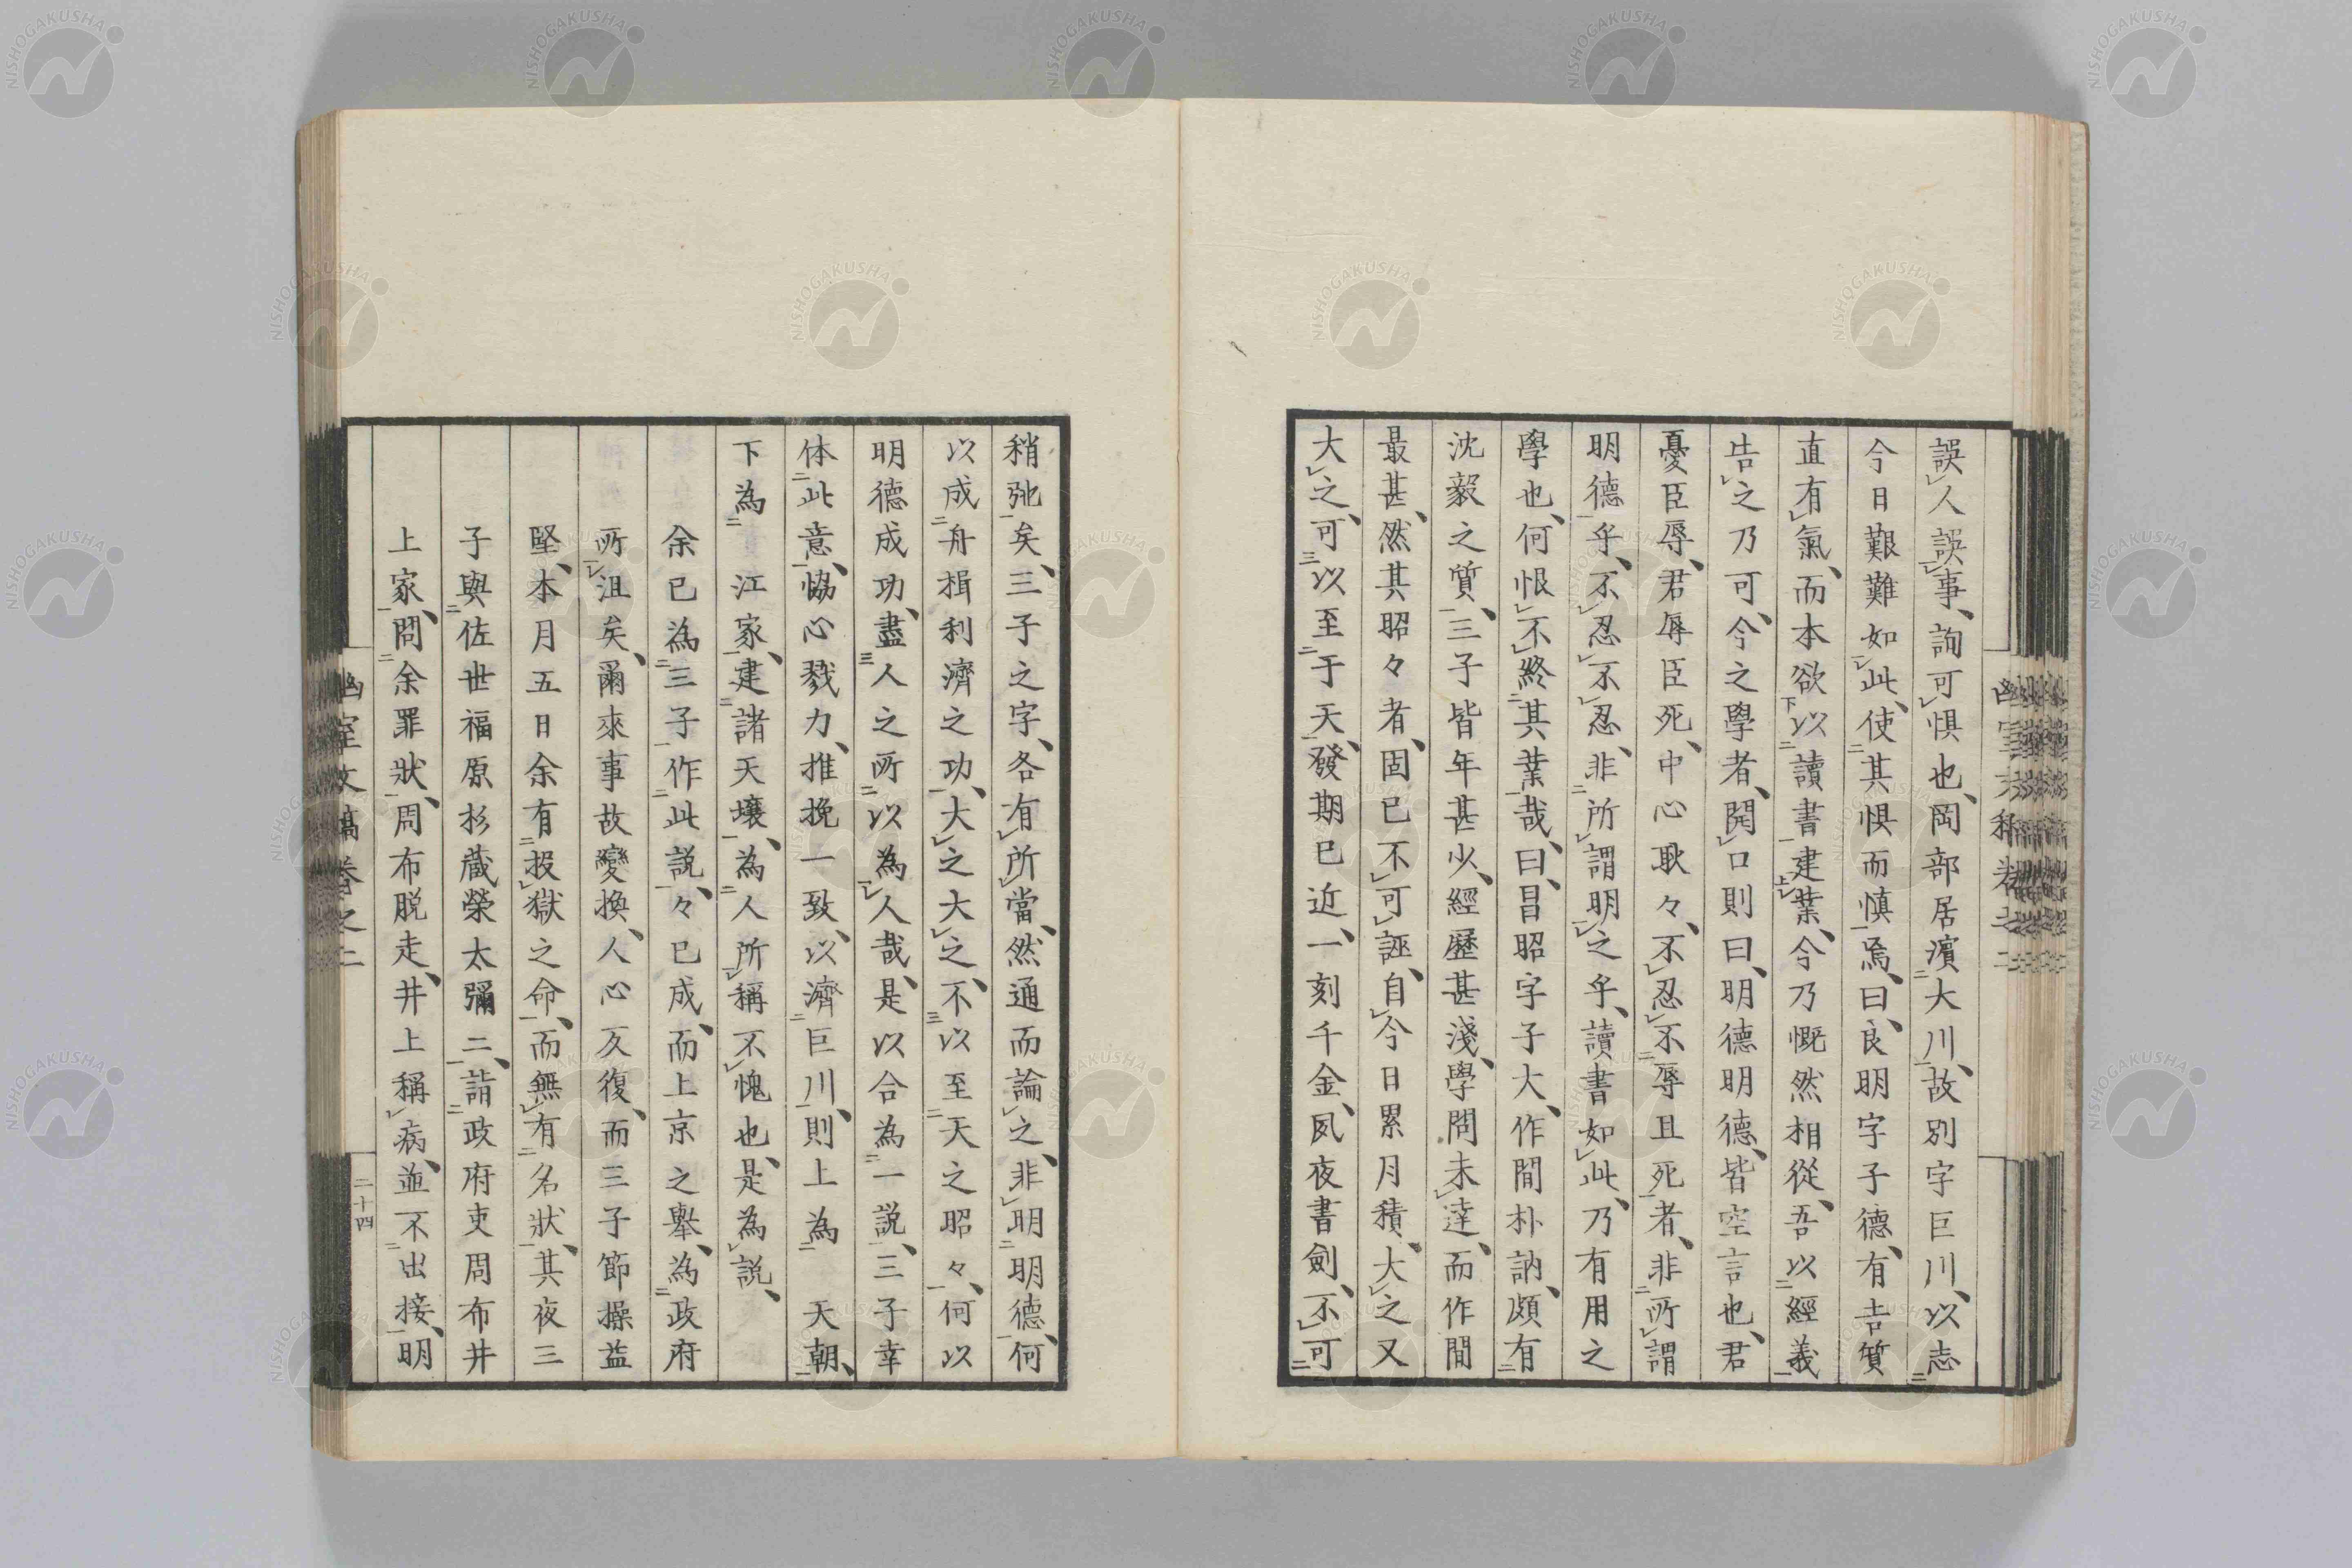 誤人誤事、詢可惧也、岡部居濵大川、故別字巨川、以志
今日艱難如此、使其惧而慎焉、曰、良明字子德、有吉質
直有氣、而本欲以讀書建業、今乃慨然相從、吾以經義
告之乃可、今之學者、開口則曰、明德明德、皆空言也、君
憂臣辱、君辱臣死、中心耿々、不忍不辱且死者、非所謂
明德乎、不忍不忍、非所謂明之乎、讀書如此、乃有用之
學也、何恨不終其業哉、曰、昌昭字子大、作間朴訥、頗有
沈毅之質、三子皆年甚少、經歷甚淺、學問未達、而作間
最甚、然其昭々者、固已不可誣、自今日累月積、大之又
大之、可以至于天、發期已近、一刻千金、夙夜書劍、不可
稍弛矣、三子之字、各有所當、然通而論之、非明明德、何
以成舟楫利濟之功、大之大之、不以至天之昭々、何以
明德成功、盡人之所以為人哉、是以合為一説、三子幸
体此意、恊心戮力、推挽一致、以濟巨川、則上為　天朝、
下為　江家、建諸天壤、為人所稱不愧也、是為説、
余已為三子作此説、々已成、而上京之舉、為政府
所沮矣、爾來事故變換、人心反復、而三子節操益
堅、本月五日余有投獄之命、而無有名狀、其夜三
子與佐世福原杉蔵榮太彌二、詣政府吏周布井
上家、問余罪狀、周布脱走、井上稱病、並不出接、明
幽室文稿卷之二
二十四